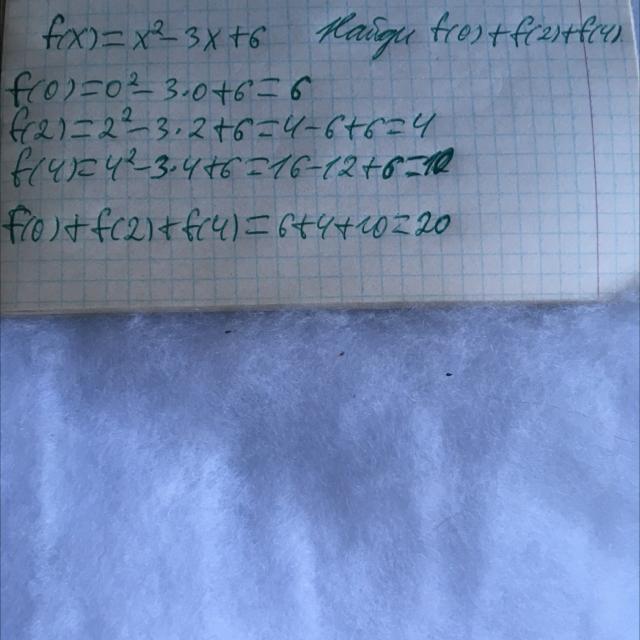 f(x) = x² - 3x + 6 Найди f(0) + f(2) + f(4)
f(0) = 0² - 3·0 + 6 = 6
f(2) = 2² - 3·2 + 6 = 4 - 6 + 6 = 4
f(4) = 4² - 3·4 + 6 = 16 - 12 + 6 = 10
f(0) + f(2) + f(4) = 6 + 4 + 10 = 20